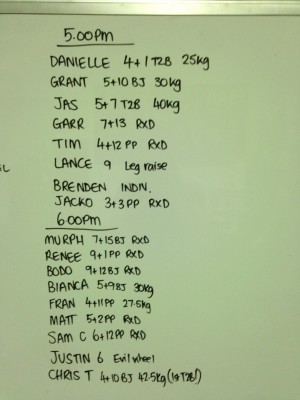 5.00pm
DANIELLE 4+1 T2B 25kg
GRANT 5+10 BJ 30kg
JAS 5+7 T2B 40kg
GARR 7+13 RXD
TIM 4+12 PP RXD
LANCE 9 Leg raise
BRENDEN INDN.
JACKO 3+3 PP RXD
6.00pm
MURPH 7+15 BJ RXD
RENEE 9+1 PP RXD
BODO 9+12 BJ RXD
BIANCA 5+9 BJ 30kg
FRAN 4+11 PP 27.5kg
MATT 5+2 PP RXD
SAM C 6+12 PP RXD
JUSTIN 6 Evil wheel
CHRIS T 4+10 BJ 42.5kg (1st T2B!)